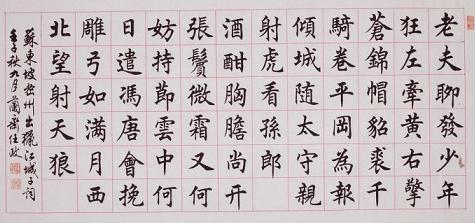 老夫聊發少年
狂左牽黃右擎
蒼錦帽貂裘千
騎卷平岡為報
傾城隨太守親
射虎看孫郎
酒酣胸膽尚開
張鬢微霜又何
妨持節雲中何
日遣馮唐會挽
雕弓如滿月西
北望射天狼
蘇東坡密州出獵江城子詞
壬子秋九月蘭齋任政